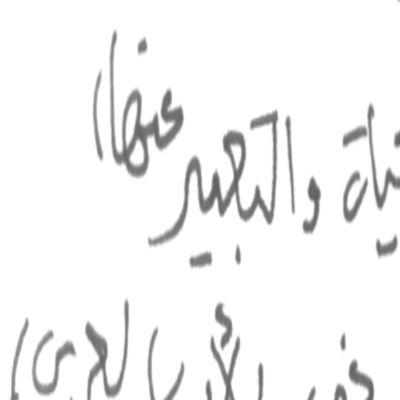 والتعبير عنها
في الأدب العربي